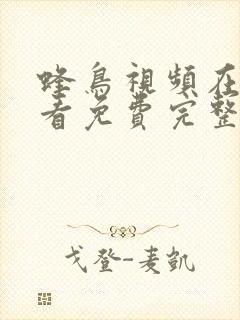 蜂鳥視頻在
看免費完整
戈登-麦凱